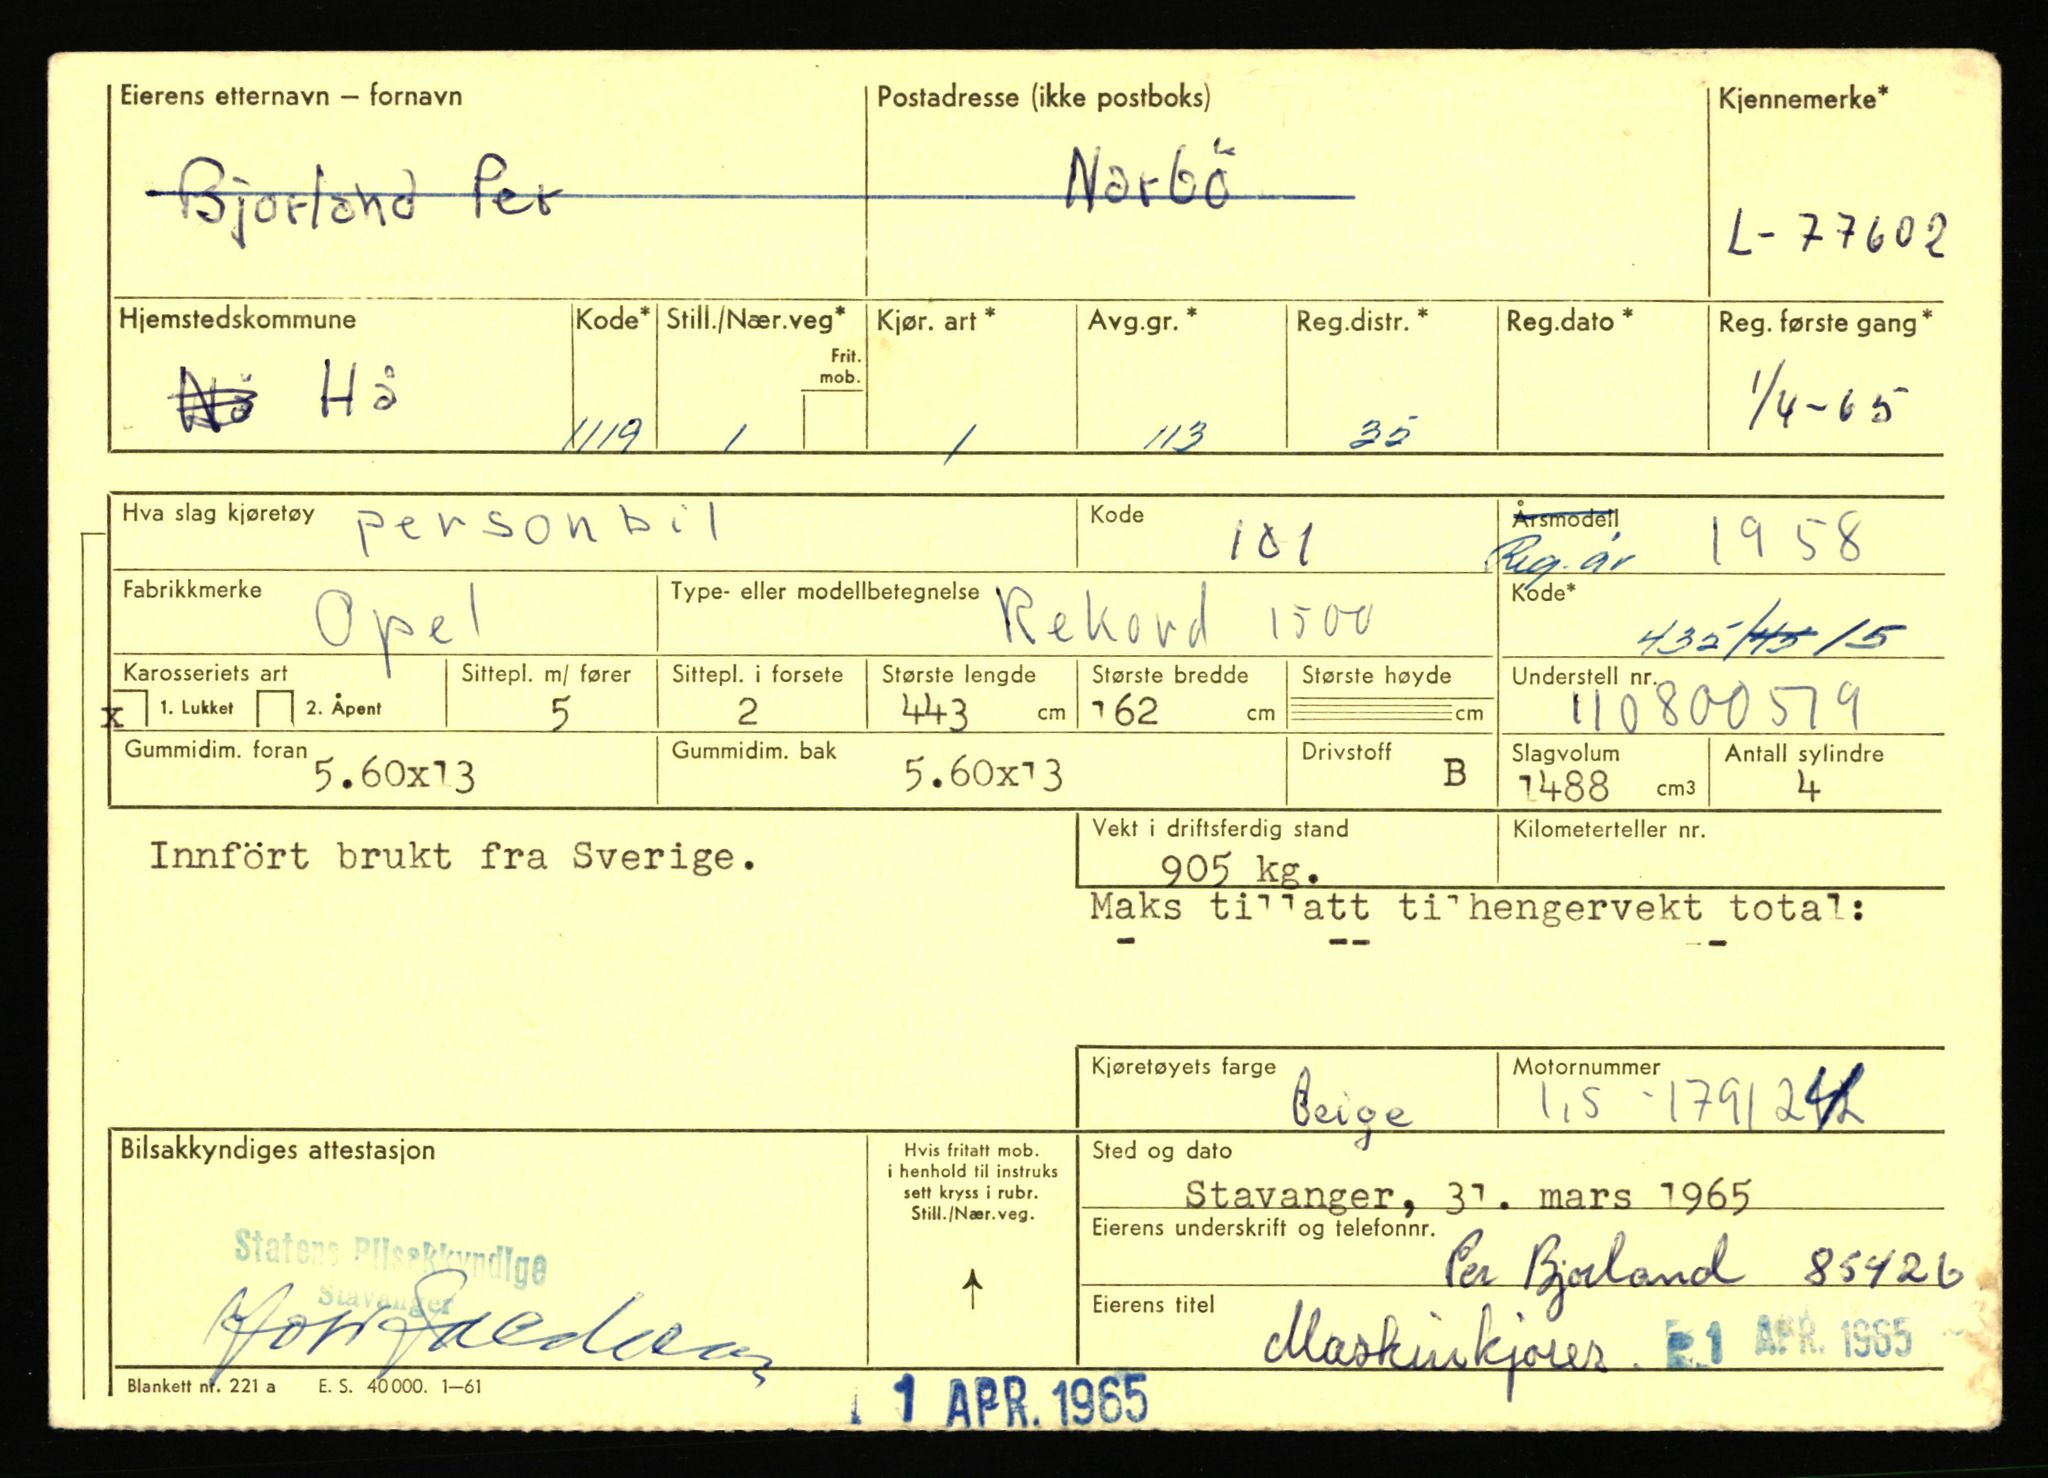 Eierens etternavn – fornavn Postadresse (ikke postboks) Kjennemerke*
Bjorland Per Narbö
L- 77602
Hjemstedskommune Kode* Still./Nær.veg* Kjør. art * Avg.gr. * Reg.distr. * Reg.dato * Reg. første gang*
Frit.
mob.
Nä Hå 1119 1 1 113 35 1/4-65
Hva slag kjøretøy personbil Kode 101 Årsmodell 1958
Reg. år
Fabrikkmerke Opel Type- eller modellbetegnelse Rekord 1500 Kode*
435/45/5
Karosseriets art Sittepl. m/ fører Sittepl. i forsete Største lengde Største bredde Største høyde Understell nr.
x 1. Lukket 2. Åpent 5 2 443 cm 162 cm cm 110800579
Gummidim. foran Gummidim. bak Drivstoff Slagvolum Antall sylindre
5.60x13 5.60x13 B 1488 cm3 4
Innfört brukt fra Sverige.
Vekt i driftsferdig stand Kilometerteller nr.
905 kg.
Maks tillatt tilhengervekt total:
- -- -
Kjøretøyets farge Motornummer
Beige 1,5 -179124
Bilsakkyndiges attestasjon
Hvis fritatt mob.
i henhold til instruks
sett kryss i rubr.
Still./Nær.veg.
Sted og dato
Stavanger, 31. mars 1965
Eierens underskrift og telefonnr.
Per Bjorland 85426
Statens Bilsakkyndige
Stavanger
Eierens titel
Maskinkjører. 1 APR. 1965
Blankett nr. 221 a E. S. 40 000. 1–61
1 APR. 1965